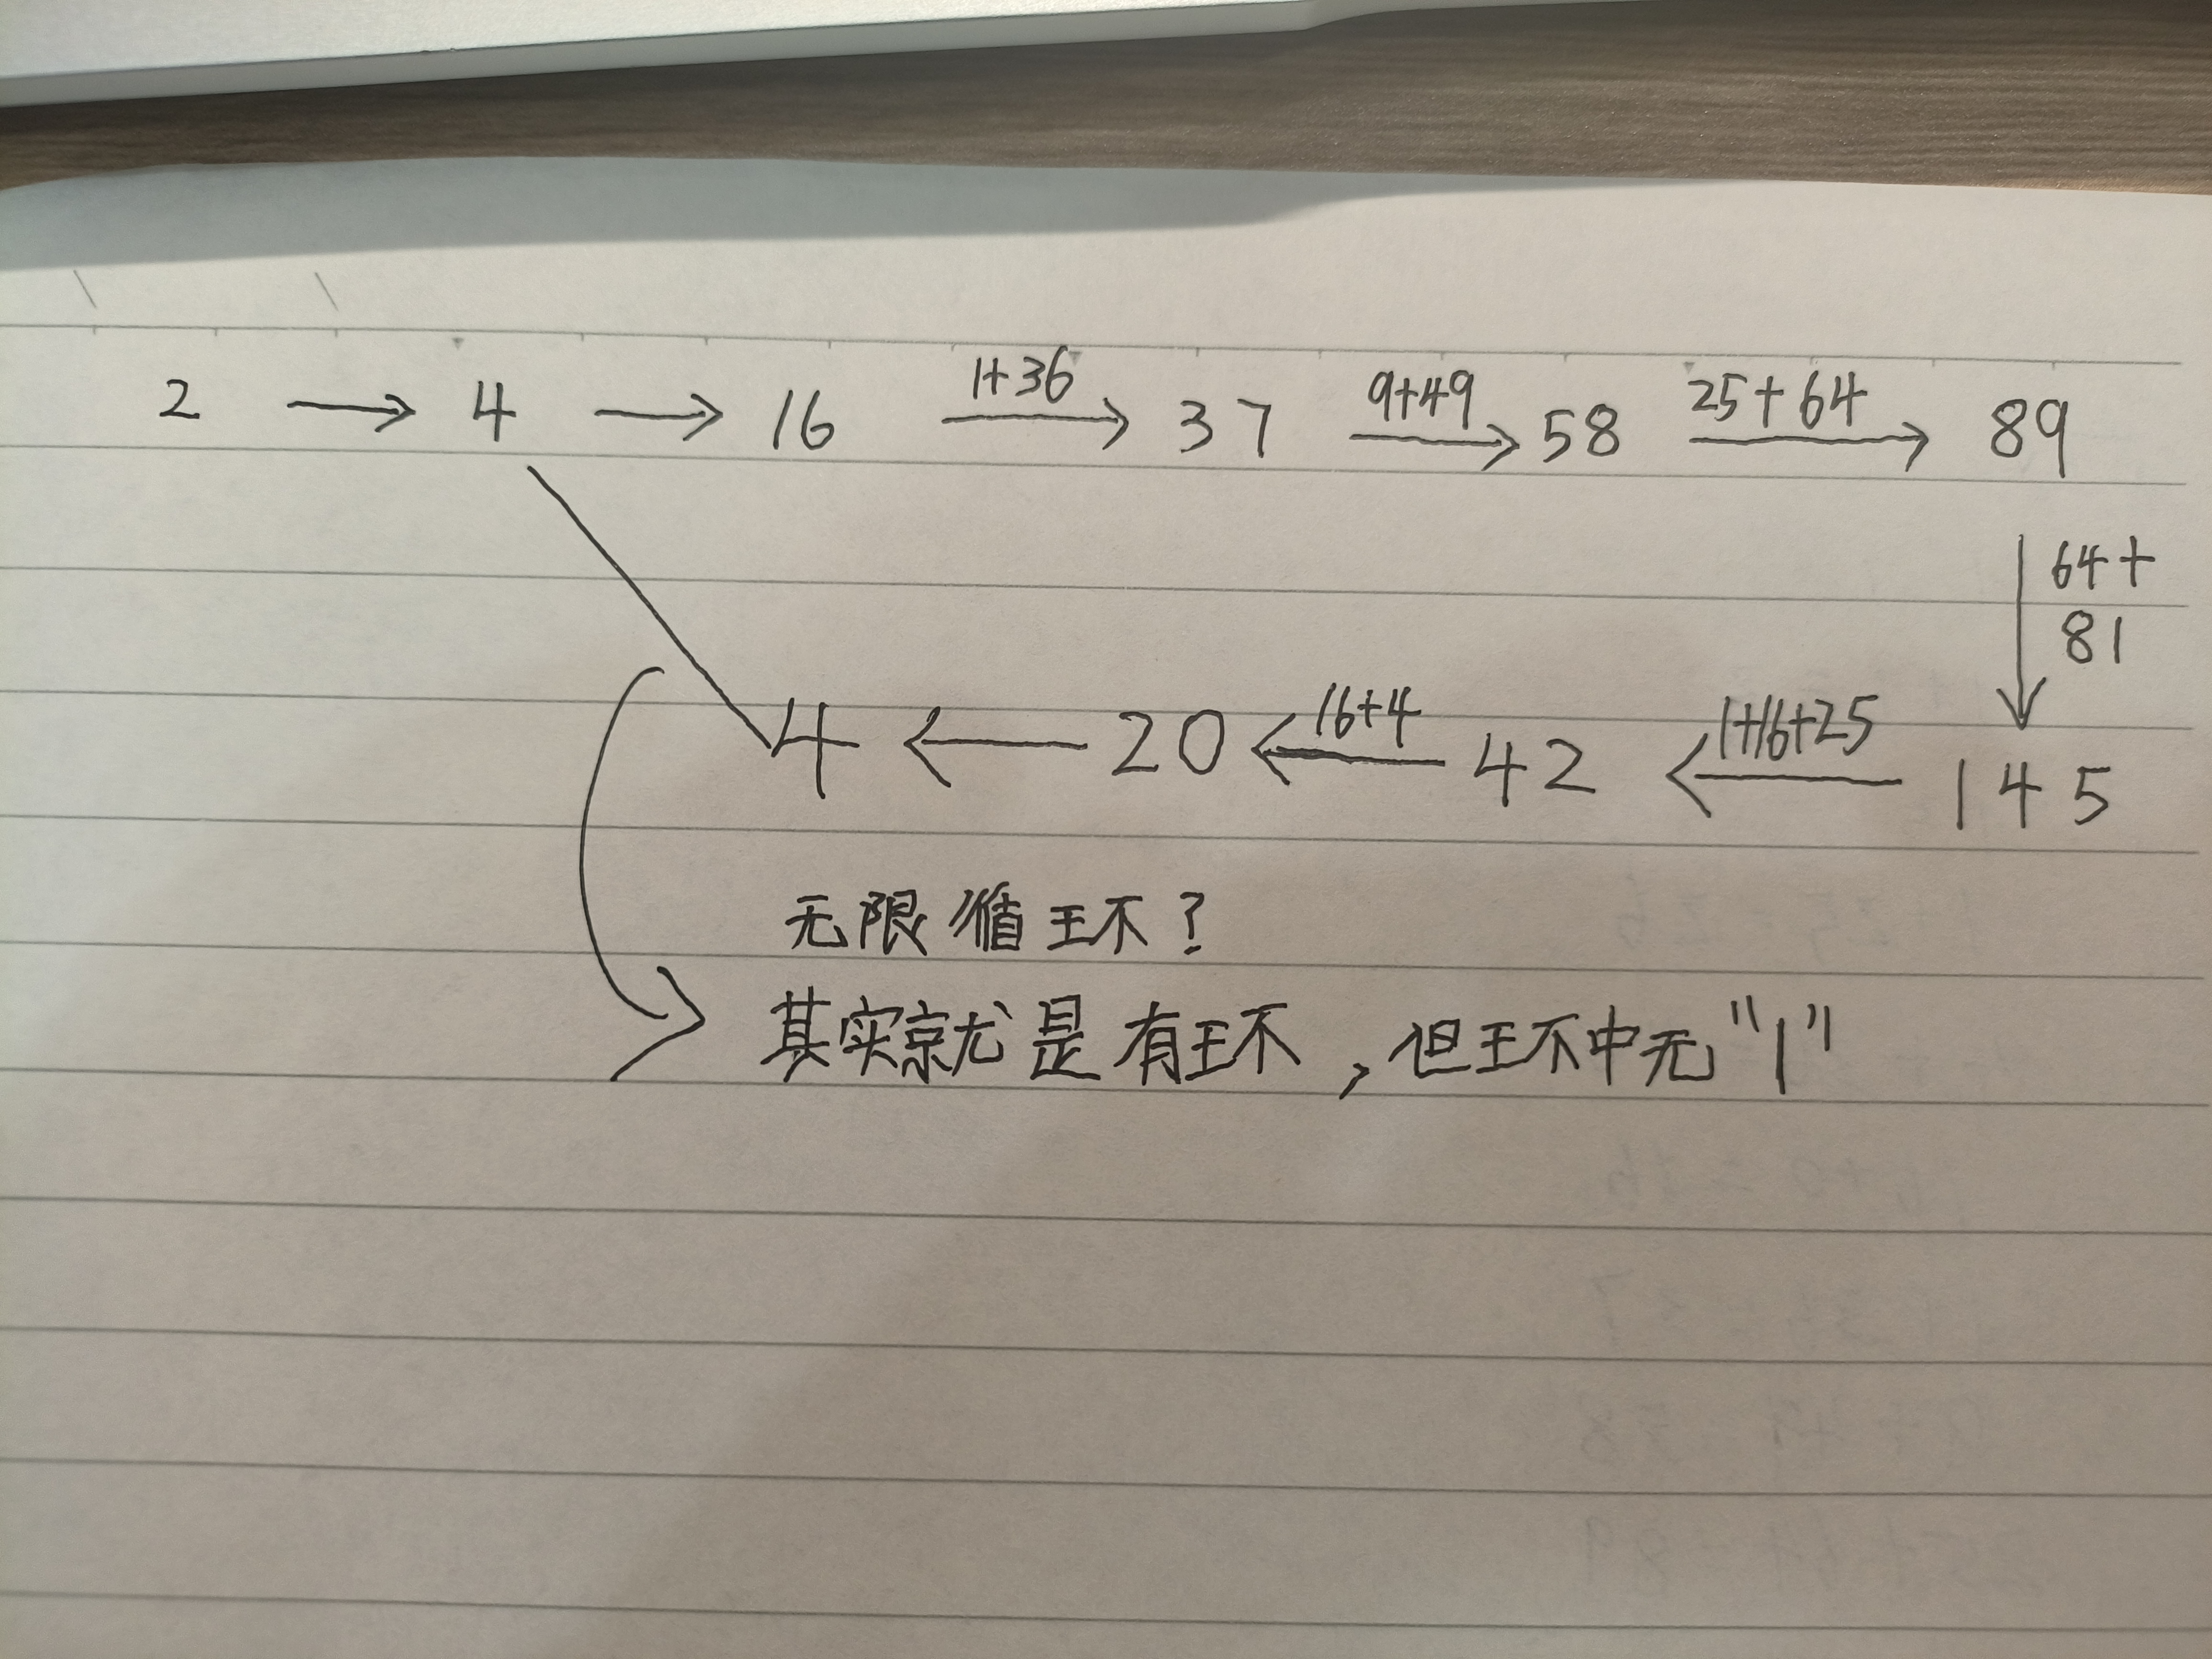 1+36 9+49 25+64
2 → 4 → 16 → 37 → 58 → 89
64+
81
16+4 1+16+25
4 ← 20 ← 42 ← 145
无限循环?
其实就是有环,但环中无"1"